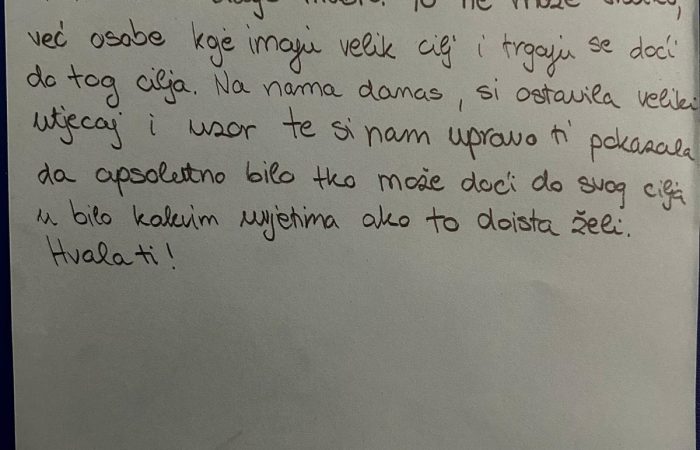 To ne može
već osobe koje imaju velik cilj i trgaju se doći
do tog cilja. Na nama danas, si ostavila veliki
utjecaj i uzor te si nam upravo ti pokazala
da apsolutno bilo tko može doći do svog cilja
u bilo kakvim uvjetima ako to doista želi.
Hvala ti!